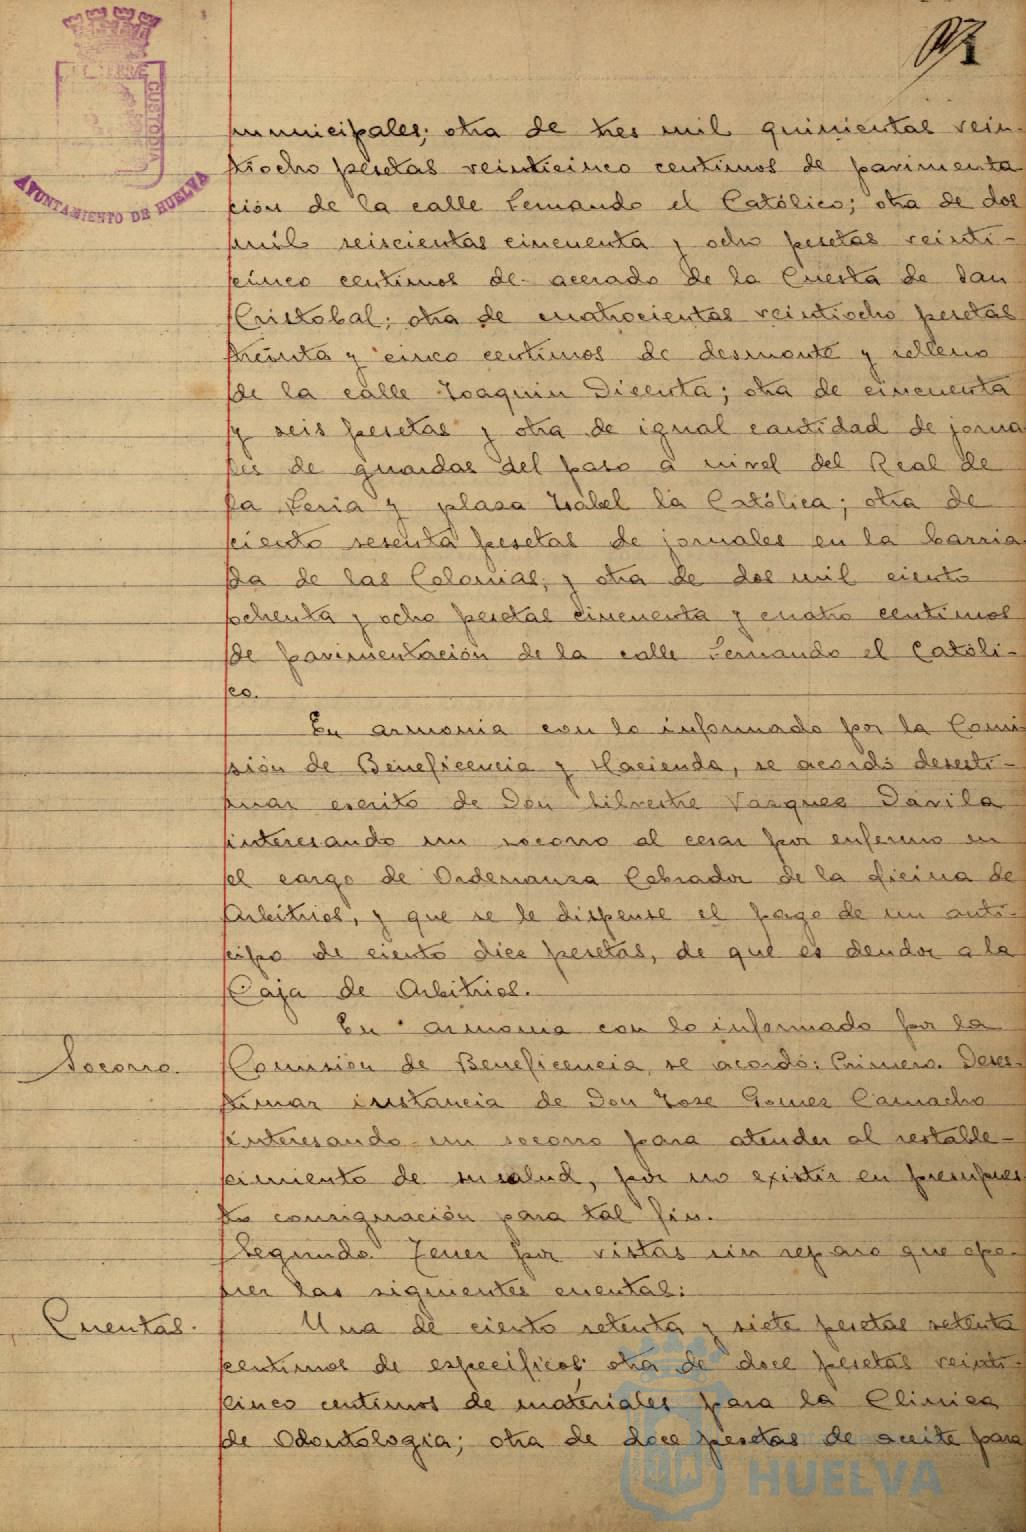 CUSTODIA
AYUNTAMIENTO DE HUELVA
municipales; otra de tres mil quinientas vein-
tiocho pesetas veinticinco centimos de pavimenta
ción de la calle Fernando el Católico; otra de dos
mil seiscientas cincuenta y ocho pesetas veinti-
cinco centimos de acerado de la Cuesta de San
Cristobal; otra de cuatrocientas veintiocho pesetas
treinta y cinco centimos de desmonte y relleno
de la calle Joaquin Dicenta; otra de cincuenta
y seis pesetas y otra de igual cantidad de jorna
les de guardas del paso a nivel del Real de
la Feria y plaza Isabel la Católica; otra de
ciento sesenta pesetas de jornales en la barria
da de las Colonias; y otra de dos mil ciento
ochenta y ocho pesetas cincuenta y cuatro centimos
de pavimentación de la calle Fernando el Católi-
co.
En armonia con lo informado por la Comi
sión de Beneficencia y Hacienda, se acordó desesti-
mar escrito de Don Silvestre Vazquez Davila
interesando un socorro al cesar por enfermo en
el cargo de Ordenanza Cobrador de la oficina de
Arbitrios, y que se le dispense el pago de un anti-
cipo de ciento diez pesetas, de que es deudor a la
Caja de Arbitrios.
En armonia con lo informado por la
Socorro. Comisión de Beneficencia, se acordó: Primero. Deses-
timar instancia de Don Jose Gomez Camacho
interesando un socorro para atender al restable-
cimiento de su salud, por no existir en presupues
to consignación para tal fin.
Segundo. Tener por vistas sin reparo que opo-
ner las siguientes cuentas:
Cuentas. Una de ciento setenta y siete pesetas setenta
centimos de especificos; otra de doce pesetas veinti-
cinco centimos de materiales para la Clinica
de Odontologia; otra de doce pesetas de aceite para
HUELVA